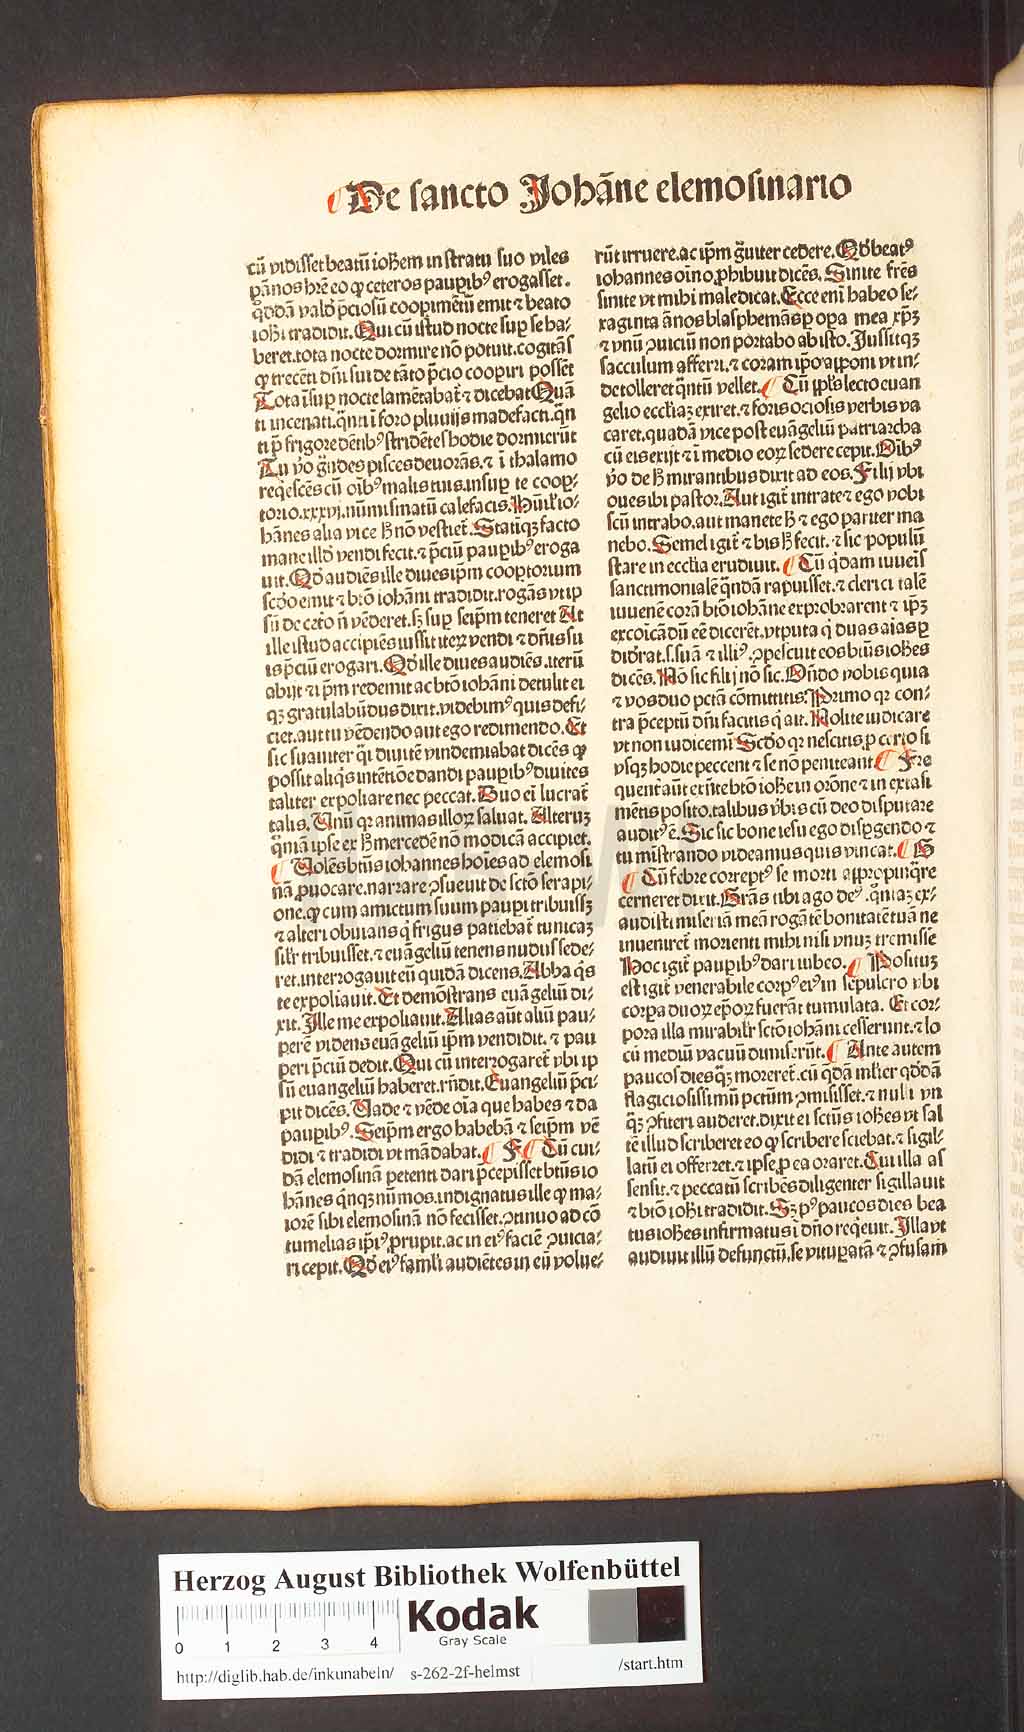 De sancto Johãne elemosinario
cũ vidisset beatũ ioħem in stratu suo viles
pãnos hr̃e eo ꝙ ceteros pauꝑibꝰ erogasset.
q̃ddã valdꝰ p̃ciosũ cooꝑimẽtũ emit ⁊ beato
iohi tradidit. Qui cũ istud nocte suꝑ se ha⸗
beret. tota nocte dormire nõ potuit. cogitãs
ꝙ trecẽti dñi sui de tãto p̃cio cooꝑiri possẽt
Tota isuꝑ nocte lamẽtabat̃ ⁊ dicebat Quã
ti incenati. q̃nti i foro pluuijs madefacti. q̃n
ti p̃ frigore dẽtibꝰ stridẽtes hodie dormierũt
Tu ṽo grãdes pisces deuorãs. ⁊ ĩ thalamo
reqescẽs cũ oĩbꝰ malis tuis. insuꝑ te cooꝑ⸗
torio. xxxvj. nũmismatũ calefacis. Hũil io⸗
hãnes alia vice ħ nõ vestiet̃. Statiqꝫ facto
mane illd̃ vendi fecit. ⁊ p̃ciũ pauꝑibꝰ eroga
uit. Qđ audiẽs ille diues ip̃m cooꝑtorium
scđo emit ⁊ btõ iohãni tradidit. rogãs vt ip
sũ de ceto ñ vẽderet. sꝫ suꝑ seip̃m teneret At
ille istud accipiẽs iussit iteꝝ vendi ⁊ dñis su
is p̃ciũ erogari. Qđ ille diues audiẽs. iterũ
abijt ⁊ ip̃m redemit ac btõ iohãni detulit ei
qꝫ gratulabũdus dixit. videbimꝰ quis defi⸗
ciet. aut tu vẽdendo aut ego redimendo. Et
sic suauiter q̃i diuitẽ vindemiabat dicẽs ꝙ
possit aliq̃s intẽtiõe dandi pauꝑibꝰ diuites
taliter expoliare nec peccat. Duo ei lucrat̃
talis. Unũ qꝛ animas illoꝝ saluat. Alterũꝫ
q̃niã ipse ex ħ mercedẽ nõ modicã accipiet.
Volẽs btũs iohannes hoĩes ad elemosi
nã ꝓuocare. narrare ↄsueuit de sctõ serapi⸗
one. ꝙ cum amictum suum pauꝑi tribuissꝫ
⁊ alteri obuians q̃ frigus patiebat̃ tunicaꝫ
silr̃ tribuisset. ⁊ euãgeliũ tenens nudus sede⸗
ret. interrogauit eũ quidã dicens. Abba q̃s
te expoliauit. Et demõstrans euãgeliũ di⸗
xit. Ille me expoliauit. Alias aũt aliũ pau⸗
perẽ videns euãgeliũ ip̃m vendidit. ⁊ pau
peri p̃ciũ dedit. Qui cũ interrogaret̃ vbi ip
sũ euangeliũ haberet. rñdit. Euangeliũ p̃ci⸗
pit dicẽs. Vade ⁊ vẽde oĩa que habes ⁊ da
pauꝑibꝰ. Seip̃m ergo habebã ⁊ seip̃m vẽ
didi ⁊ tradidi vt mãdabat. F Cũ cui⸗
dã elemosinã petenti dari p̃cepisset btũs io
hãnes q̃nqꝫ nũmos. indignatus ille ꝙ ma⸗
iorẽ sibi elemosinã nõ fecisset. ↄtinuo ad cõ
tumelias ip̃iꝰ ꝓrupit. ac in eiꝰ faciẽ ↄuicia⸗
ri cepit. Qđ eiꝰ famli audiẽtes in eũ volue⸗
rũt irruere. ac ip̃m g̃uiter cedere. Qđ beatꝰ
iohannes oĩno ꝓhibuit dicẽs. Sinite fr̃es
sinite vt mihi maledicat. Ecce eni habeo se⸗
xaginta ãnos blasphemãs ꝑ oꝑa mea xp̃ꝫ
⁊ vnũ ↄuiciũ non portabo ab isto. Jussitqꝫ
sacculum afferri. ⁊ coram ip̃o apponi vt in⸗
de tolleret q̃ntũ vellet. Cũ pp̃ls lecto euan
gelio eccl̃iaꝫ exiret. ⁊ foris ociosis verbis va
caret. quadã vice post euãgeliũ patriarcha
cũ eis exijt ⁊ i medio eoꝝ sedere cepit. Oĩbꝰ
ṽo de ħ mirantibus dixit ad eos. Filij vbi
oues ibi pastor. Aut igit̃ intrate ⁊ ego vobi
scũ intrabo. aut manete ħ ⁊ ego pariter ma
nebo. Semel igit̃ ⁊ bis ħ fecit. ⁊ sic populũ
stare in eccl̃ia erudiuit. Cũ q̃dam iuueĩs
sanctimonialẽ q̃ndã rapuisset. ⁊ clerici talẽ
iuuenẽ corã btõ iohãne exprobrarent ⁊ ip̃ꝫ
excoĩcãdũ eẽ dicerẽt. vtputa q̃ duas aĩas ꝑ
diđrat. s. suã ⁊ illiꝰ. ↄpescuit eos btũs ioħes
dicẽs. Nõ sic filij nõ sic. Oñdo vobis quia
⁊ vos duo pctã cõmittitis. Primo qꝛ con⸗
tra p̃ceptũ dñi facitis q̃ ait. Nolite iudicare
vt non iudicemĩ Scđo qꝛ nescitis ꝓ certo si
vsqꝫ hodie peccent ⁊ se nõ peniteant. Fre
quenter aũt btõ ioħe in orõne ⁊ in extasi
mẽtis posito. talibus v̾bis cũ deo disputare
auditꝰ ẽ. Sic sic bone iesu ego disꝑgendo ⁊
tu mĩstrando videamus quis vincat. G
Cũ febre correptꝰ se morti appropinq̃re
cerneret dixit. Grãs tibi ago deꝰ. q̃niaꝫ ex⸗
audisti miseriã meã rogãtẽ bonitatẽ tuã ne
inueniret̃ morienti mihi nisi vnuꝫ tremisse
Hoc igit̃ pauꝑibꝰ dari iubeo. Positus
est igit̃ venerabile corpꝰ eiꝰ in sepulcro vbi
corꝑa duoꝝ ep̃oꝝ fuerãt tumulata. Et cor⸗
pora illa mirabilr̃ sctõ iohãni cesserunt. ⁊ lo
cũ mediũ vacuũ dimiserũt. Ante autem
paucos dies q̃ꝫ moreret̃. cũ q̃dã mlier qđdã
flagiciosissimũ pctũm ↄmisisset. ⁊ nulli vn
q̃ꝫ ↄfiteri auderet. dixit ei sctũs ioħes vt sal
tẽ illud scriberet eo ꝙ scribere sciebat. ⁊ sigil⸗
latũ ei offerret. ⁊ ipse ꝓ ea oraret. Cui illa as
sensit. ⁊ peccatũ scribẽs diligenter sigillauit
⁊ btõ iohi tradidit. Sꝫ pꝰ paucos dies bea
tus ioħes infirmatus i dño reqeuit. Illa vt
audiuit illũ defunctũ. se vituꝑatã ⁊ ↄfusam
Herzog August Bibliothek Wolfenbüttel
0 1 2 3 4
Kodak
Gray Scale
http://diglib.hab.de/inkunabeln/ s-262-2f-helmst /start.htm